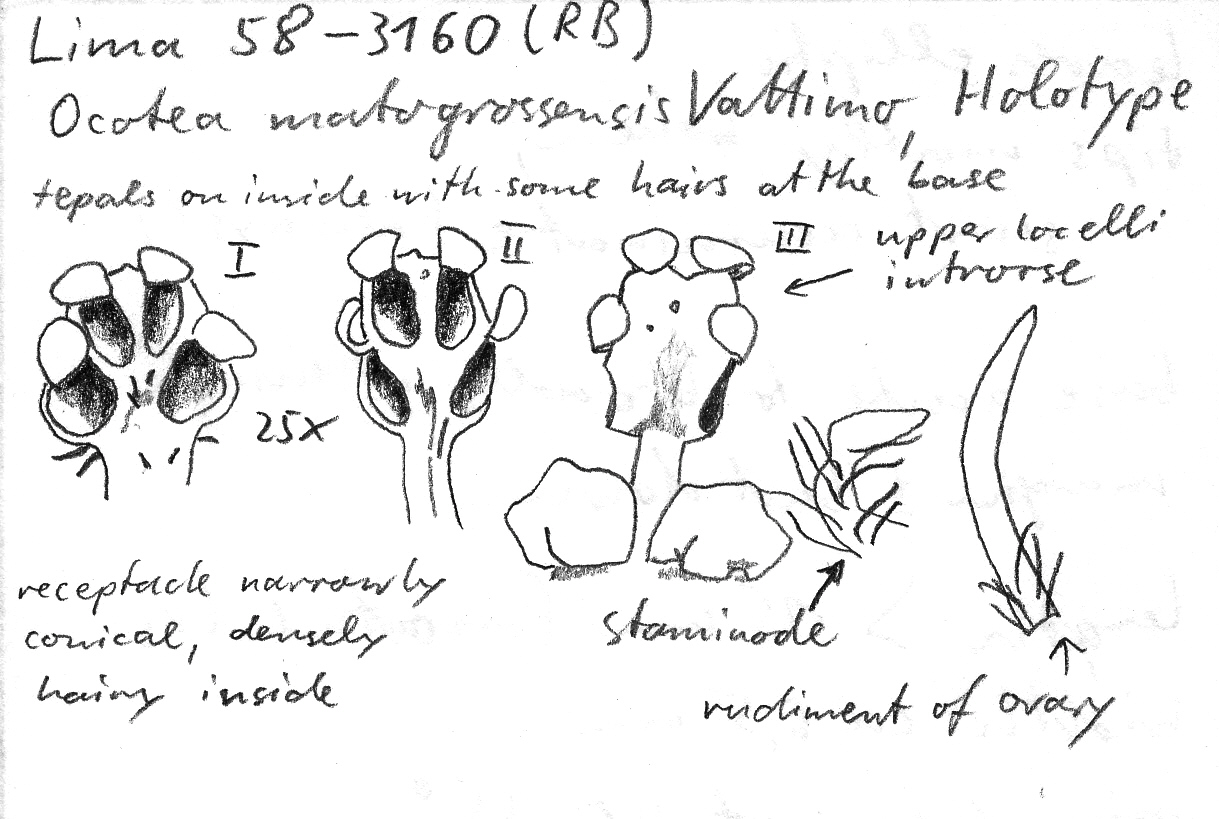 Lima 58-3160 (RB)
Ocotea matogrossensis Vattimo, Holotype
tepals on inside with some hairs at the base
I
II
III
upper locelli
introrse
25x
receptacle narrowly
conical, densely
hairy inside
staminode
rudiment of ovary